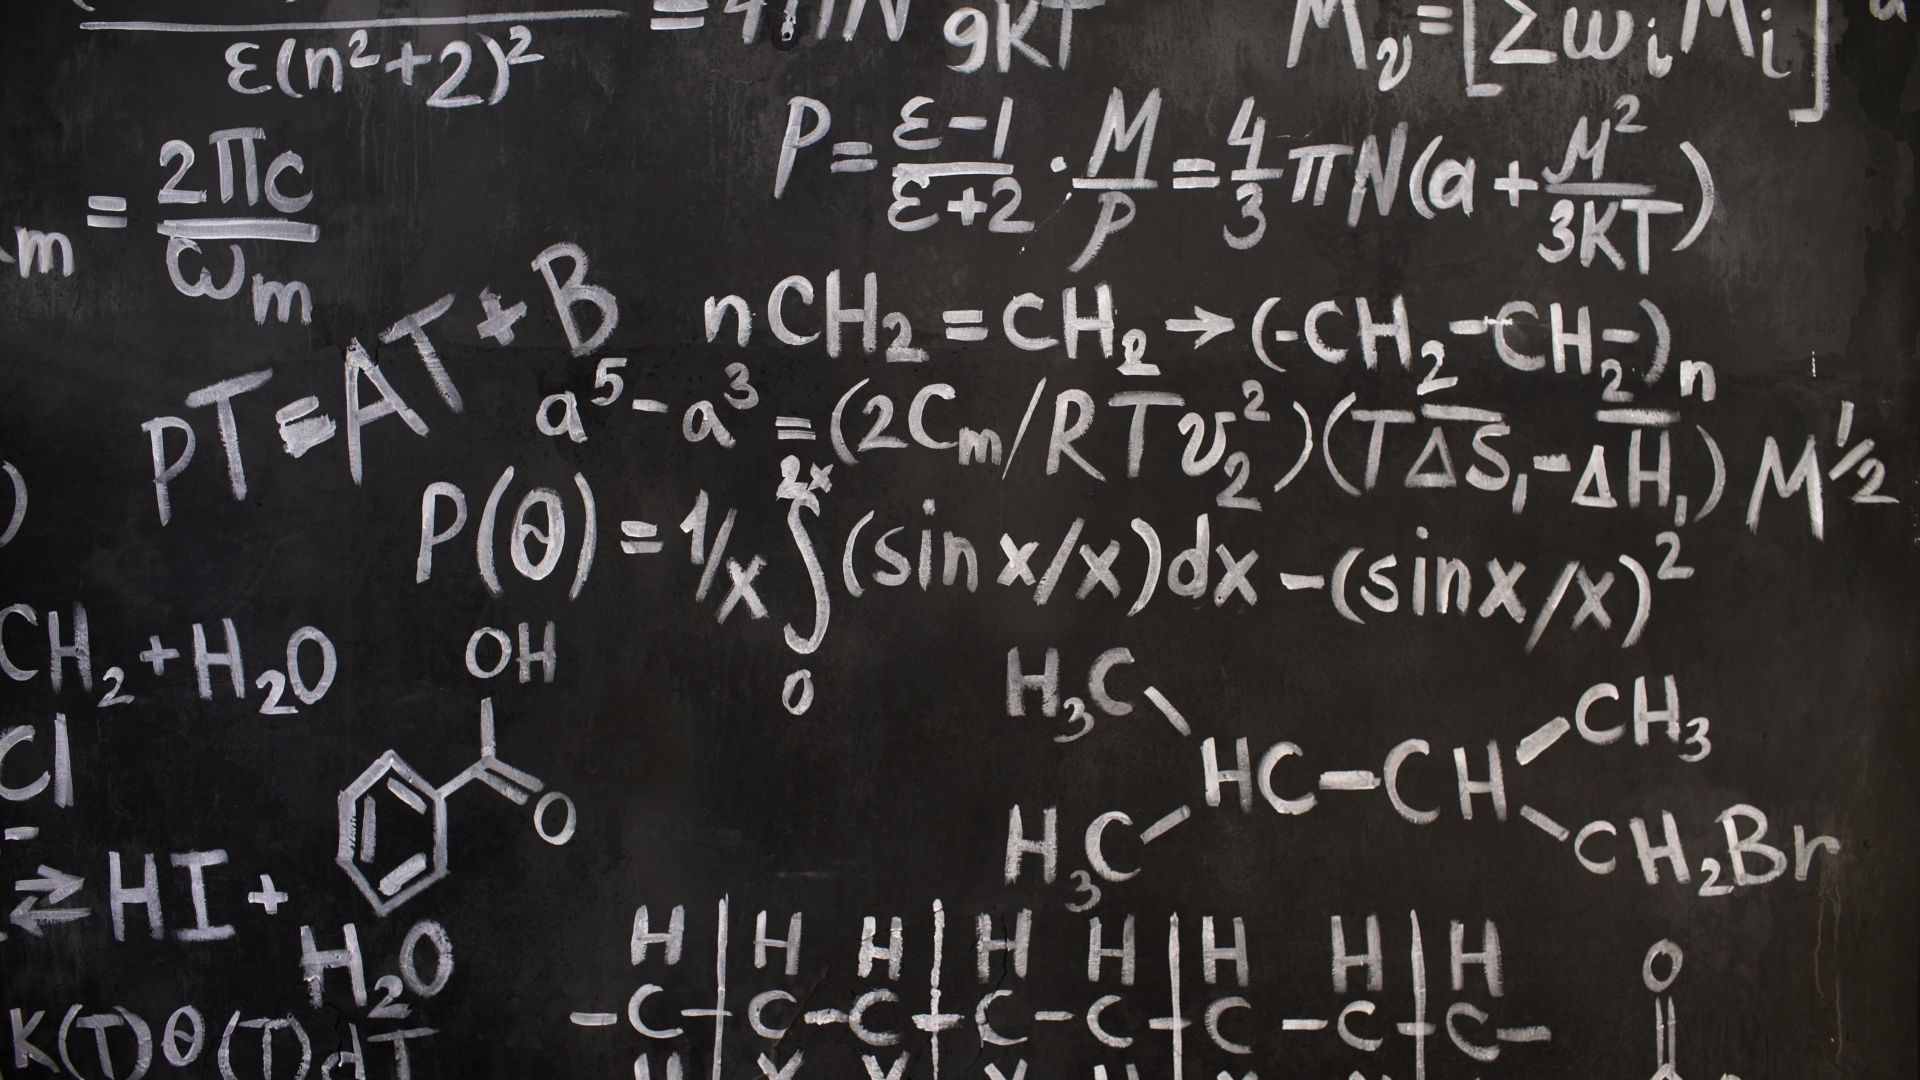 ε(n²+2)² = 4πN 9KT
M_v = [Σw_i M_i]
P = ε-1/ε+2 · M/P = 4/3 πN(a + M²/3KT)
m = 2πc/ω_m
PT = AT + B
nCH₂=CH₂→(-CH₂-CH₂-)n
a⁵-a³ = (2Cm/RTv₂²)(TΔS₁-ΔH₁) M^1/2
P(θ) = 1/x ∫₀²ˣ (sin x/x)dx - (sinx/x)²
CH₂+H₂O
OH
O
Cl
H₃C CH₃
HC-CH
H₃C CH₂Br
⇄ HI + H₂O
H H H H H H H H
-C-C-C-C-C-C-C-C-
O
K(T)θ(T)dT